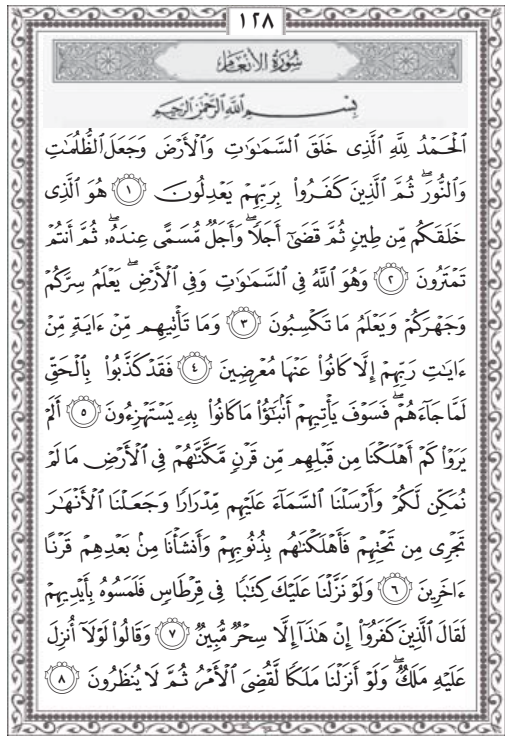 ١٢٨
سُورَةُ الأَنْعَامِ
بِسْمِ اللَّهِ الرَّحْمَٰنِ الرَّحِيمِ
ٱلْحَمْدُ لِلَّهِ ٱلَّذِى خَلَقَ ٱلسَّمَٰوَٰتِ وَٱلْأَرْضَ وَجَعَلَ ٱلظُّلُمَٰتِ
وَٱلنُّورَۖ ثُمَّ ٱلَّذِينَ كَفَرُوا۟ بِرَبِّهِمْ يَعْدِلُونَ ١ هُوَ ٱلَّذِى
خَلَقَكُم مِّن طِينٍ ثُمَّ قَضَىٰٓ أَجَلًاۖ وَأَجَلٌ مُّسَمًّى عِندَهُۥۖ ثُمَّ أَنتُمْ
تَمْتَرُونَ ٢ وَهُوَ ٱللَّهُ فِى ٱلسَّمَٰوَٰتِ وَفِى ٱلْأَرْضِۖ يَعْلَمُ سِرَّكُمْ
وَجَهْرَكُمْ وَيَعْلَمُ مَا تَكْسِبُونَ ٣ وَمَا تَأْتِيهِم مِّنْ ءَايَةٍ مِّنْ
ءَايَٰتِ رَبِّهِمْ إِلَّا كَانُوا۟ عَنْهَا مُعْرِضِينَ ٤ فَقَدْ كَذَّبُوا۟ بِٱلْحَقِّ
لَمَّا جَآءَهُمْۖ فَسَوْفَ يَأْتِيهِمْ أَنۢبَٰٓؤُا۟ مَا كَانُوا۟ بِهِۦ يَسْتَهْزِءُونَ ٥ أَلَمْ
يَرَوْا۟ كَمْ أَهْلَكْنَا مِن قَبْلِهِم مِّن قَرْنٍ مَّكَّنَّٰهُمْ فِى ٱلْأَرْضِ مَا لَمْ
نُمَكِّن لَّكُمْ وَأَرْسَلْنَا ٱلسَّمَآءَ عَلَيْهِم مِّدْرَارًا وَجَعَلْنَا ٱلْأَنْهَٰرَ
تَجْرِى مِن تَحْتِهِمْ فَأَهْلَكْنَٰهُم بِذُنُوبِهِمْ وَأَنشَأْنَا مِنۢ بَعْدِهِمْ قَرْنًا
ءَاخَرِينَ ٦ وَلَوْ نَزَّلْنَا عَلَيْكَ كِتَٰبًا فِى قِرْطَاسٍ فَلَمَسُوهُ بِأَيْدِيهِمْ
لَقَالَ ٱلَّذِينَ كَفَرُوٓا۟ إِنْ هَٰذَآ إِلَّا سِحْرٌ مُّبِينٌ ٧ وَقَالُوا۟ لَوْلَآ أُنزِلَ
عَلَيْهِ مَلَكٌۖ وَلَوْ أَنزَلْنَا مَلَكًا لَّقُضِىَ ٱلْأَمْرُ ثُمَّ لَا يُنظَرُونَ ٨